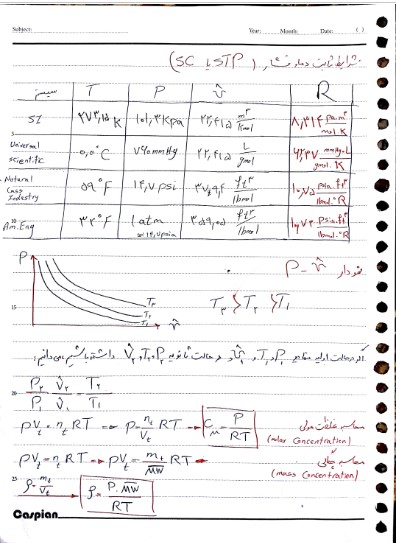 Subject: Year: Month: Date: ( )
شرایط ثابت دما و فشار (STP یا SC)
سیستم T P v̂ R
SI ۲۷۳,۱۵ K ۱۰۱,۳ Kpa ۲۲,۴۱۵ m³/Kmol ۸,۳۱۴ pa.m³/mol.K
Universal scientific ۰,۰°C ۷۶۰ mmHg ۲۲,۴۱۵ L/gmol ۶۲,۳۷ mmHg.L/gmol.K
Natural Gass Industry ۵۹°F ۱۴,۷ psi ۳۷۹,۴ ft³/lbmol ۱۰,۷۵ psia.ft³/lbmol.°R
Am. Eng ۳۲°F 1 atm ≈۱۴,۷psia ۳۵۹,۰۵ ft³/lbmol ۱۰,۷۳ Psia.ft³/lbmol.°R
5
10
P نمودار P - v̂
T۳ > T۲ > T۱
15
T۳
T۲
T۱
v̂
اگر حالت اولیه P۱ و T۱ و v̂۱ و در حالت ثانویه P۲ و T۲ و v̂۲ داشته باشیم می‌دانیم:
20 P۲/P۱ v̂۲/v̂۱ = T۲/T۱
PVt = nt RT → P = nt/Vt RT → CM = P/RT محاسبه غلظت مولی
(molar Concentration)
PVt = nt RT → PVt = mt/MW RT → محاسبه چگالی
(mass Concentration)
25 ρ = mt/Vt → ρ = P.MW/RT
Caspian